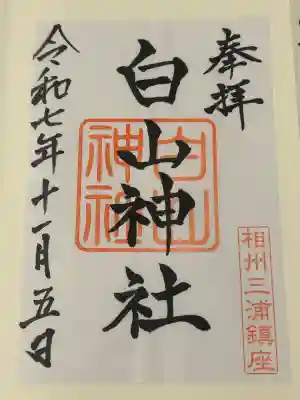 奉拝
白山神社
白山神社
相州三浦鎮座
令和七年十一月五日